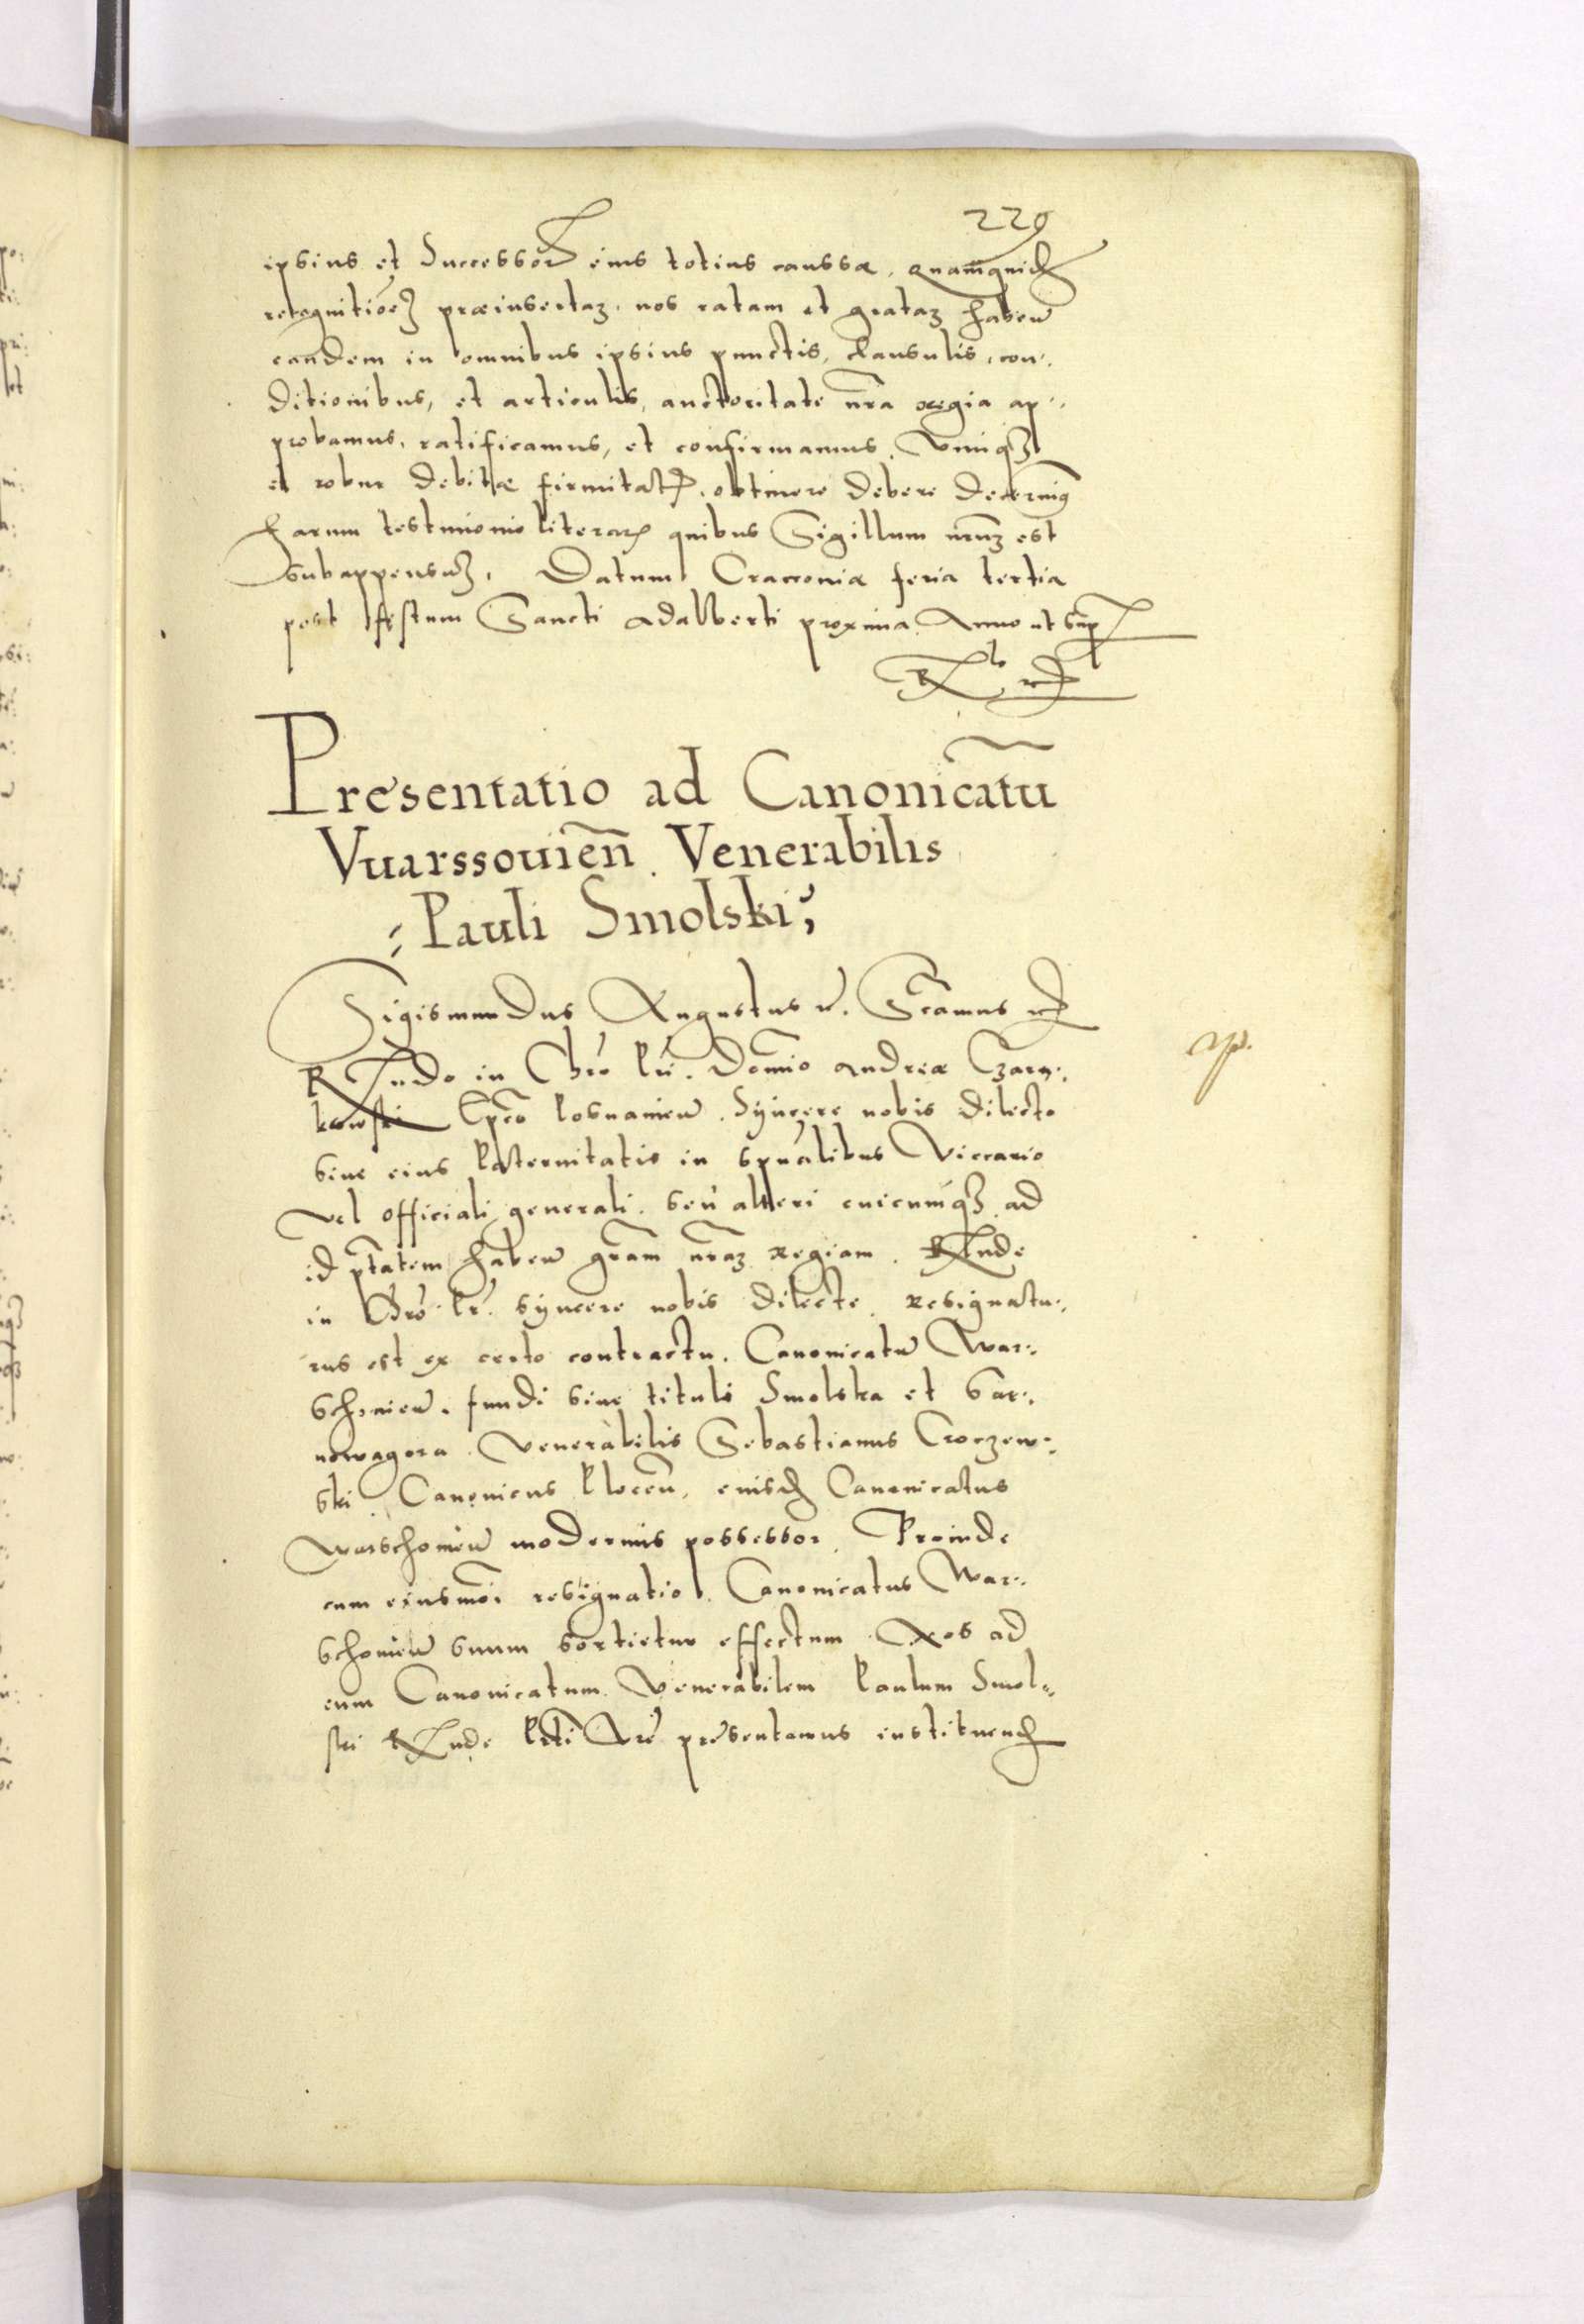 229
ipsius et Successor eius totius caussæ, quamquid
recognitioē præinsertaz, nos ratam et grataz haben̄
eandem in omnibus ipsius punctis, clausulis, con:
ditionibus, et articulis, auctoritate nr̄a regia ap:
probamus, ratificamus, et confirmamus,
et robur debitæ firmitat, obtinere debere decernimꝰ
harum testimonio literar quibus Sigillum nrūz est
subappensuz, Datum Cracoviæ feria tertia
post festum Sancti Adalberti proxima Anno ut sup
Presentatio ad Canonicatū
Vuarssovień. Venerabilis
Pauli Smolski;
Sigismundus Augustus
Rndo in Chrō Pri. Domīo Andreæ Czarn:
kowski Epō Posnanien̄. Syncere nobis dilecto
sive eius Paternitatis in spūalibus Viccario
vel officiali generali, seu alteri cuicumqz ad
id ptātem haben̄ grām nrāz regiam. Rnde
in Chrō Pr. syncere nobis dilecte, resignatu:
rus est ex certo contractu, Canonicatū War:
schovien̄. fundi sive tituli Smolska et Sar:
nowagora. Venerabilis Sebastianus Croczew:
ski Canonicus Plocen̄. eiusd Canonicatus
Warschovien̄ modernus possessor, Proinde
cum eiusmōi resignatio Canonicatus War:
schovien̄ suum sortietur effectum. Nos ad
eum Canonicatum Venerabilem Paulum Smol:
ski Rnde Ptti Vrē presentamus instituend